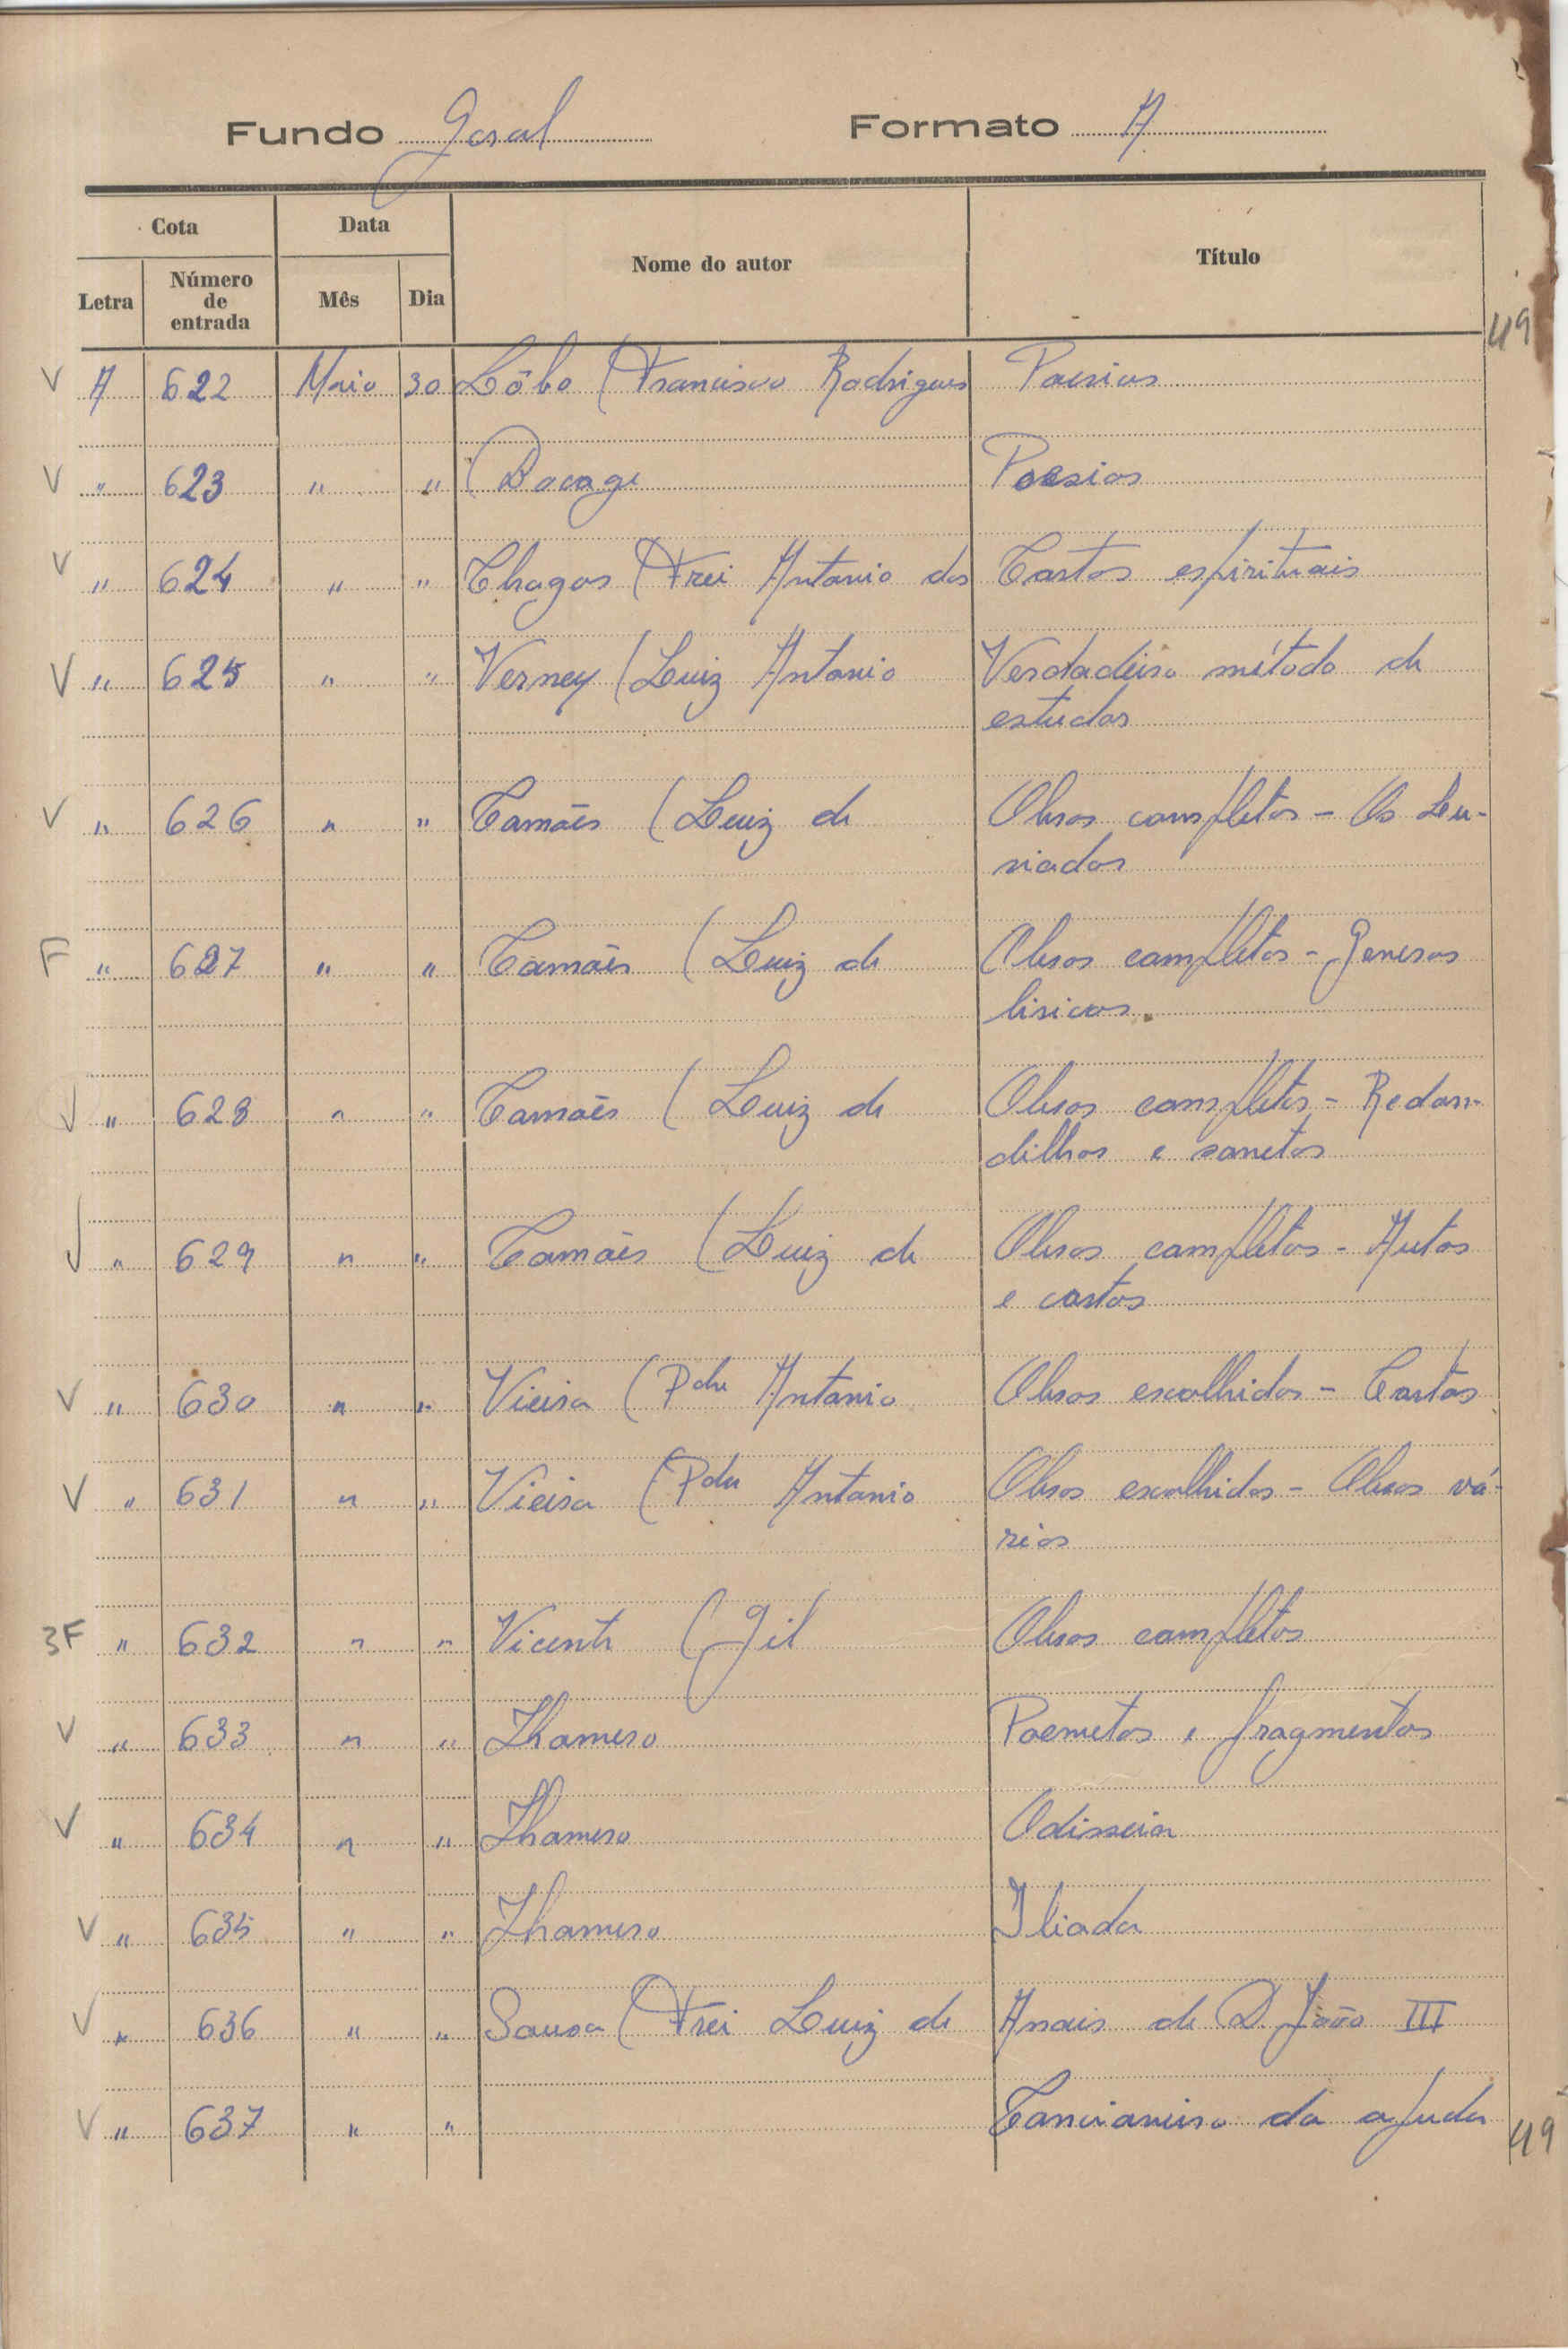 Fundo Geral Formato A
Cota Data Nome do autor Título
Letra Número de entrada Mês Dia
49
V A 622 Maio 30 Lôbo (Francisco Rodrigues Poesias
V " 623 " " (Bocage Poesias
V " 624 " " Chagas (Frei Antonio das Cartas espirituais
V " 625 " " Verney (Luiz Antonio Verdadeiro método de
estudar
V " 626 " " Camões (Luiz de Obras completas - Os Lu-
siadas
F " 627 " " Camões (Luiz de Obras completas - Generos
liricos
V " 628 " " Camões (Luiz de Obras completas - Redon-
dilhas e sonetos
V " 629 " " Camões (Luiz de Obras completas - Autos
e cartas
V " 630 " " Vieira (Pdre Antonio Obras escolhidas - Cartas
V " 631 " " Vieira (Pdre Antonio Obras escolhidas - Obras vá-
rias
3F " 632 " " Vicente (Gil Obras completas
V " 633 " " Homero Poemetos e fragmentos
V " 634 " " Homero Odisseia
V " 635 " " Homero Iliada
V " 636 " " Sousa (Frei Luiz de Anais de D. João III
V " 637 " " Cancioneiro da ajuda
49